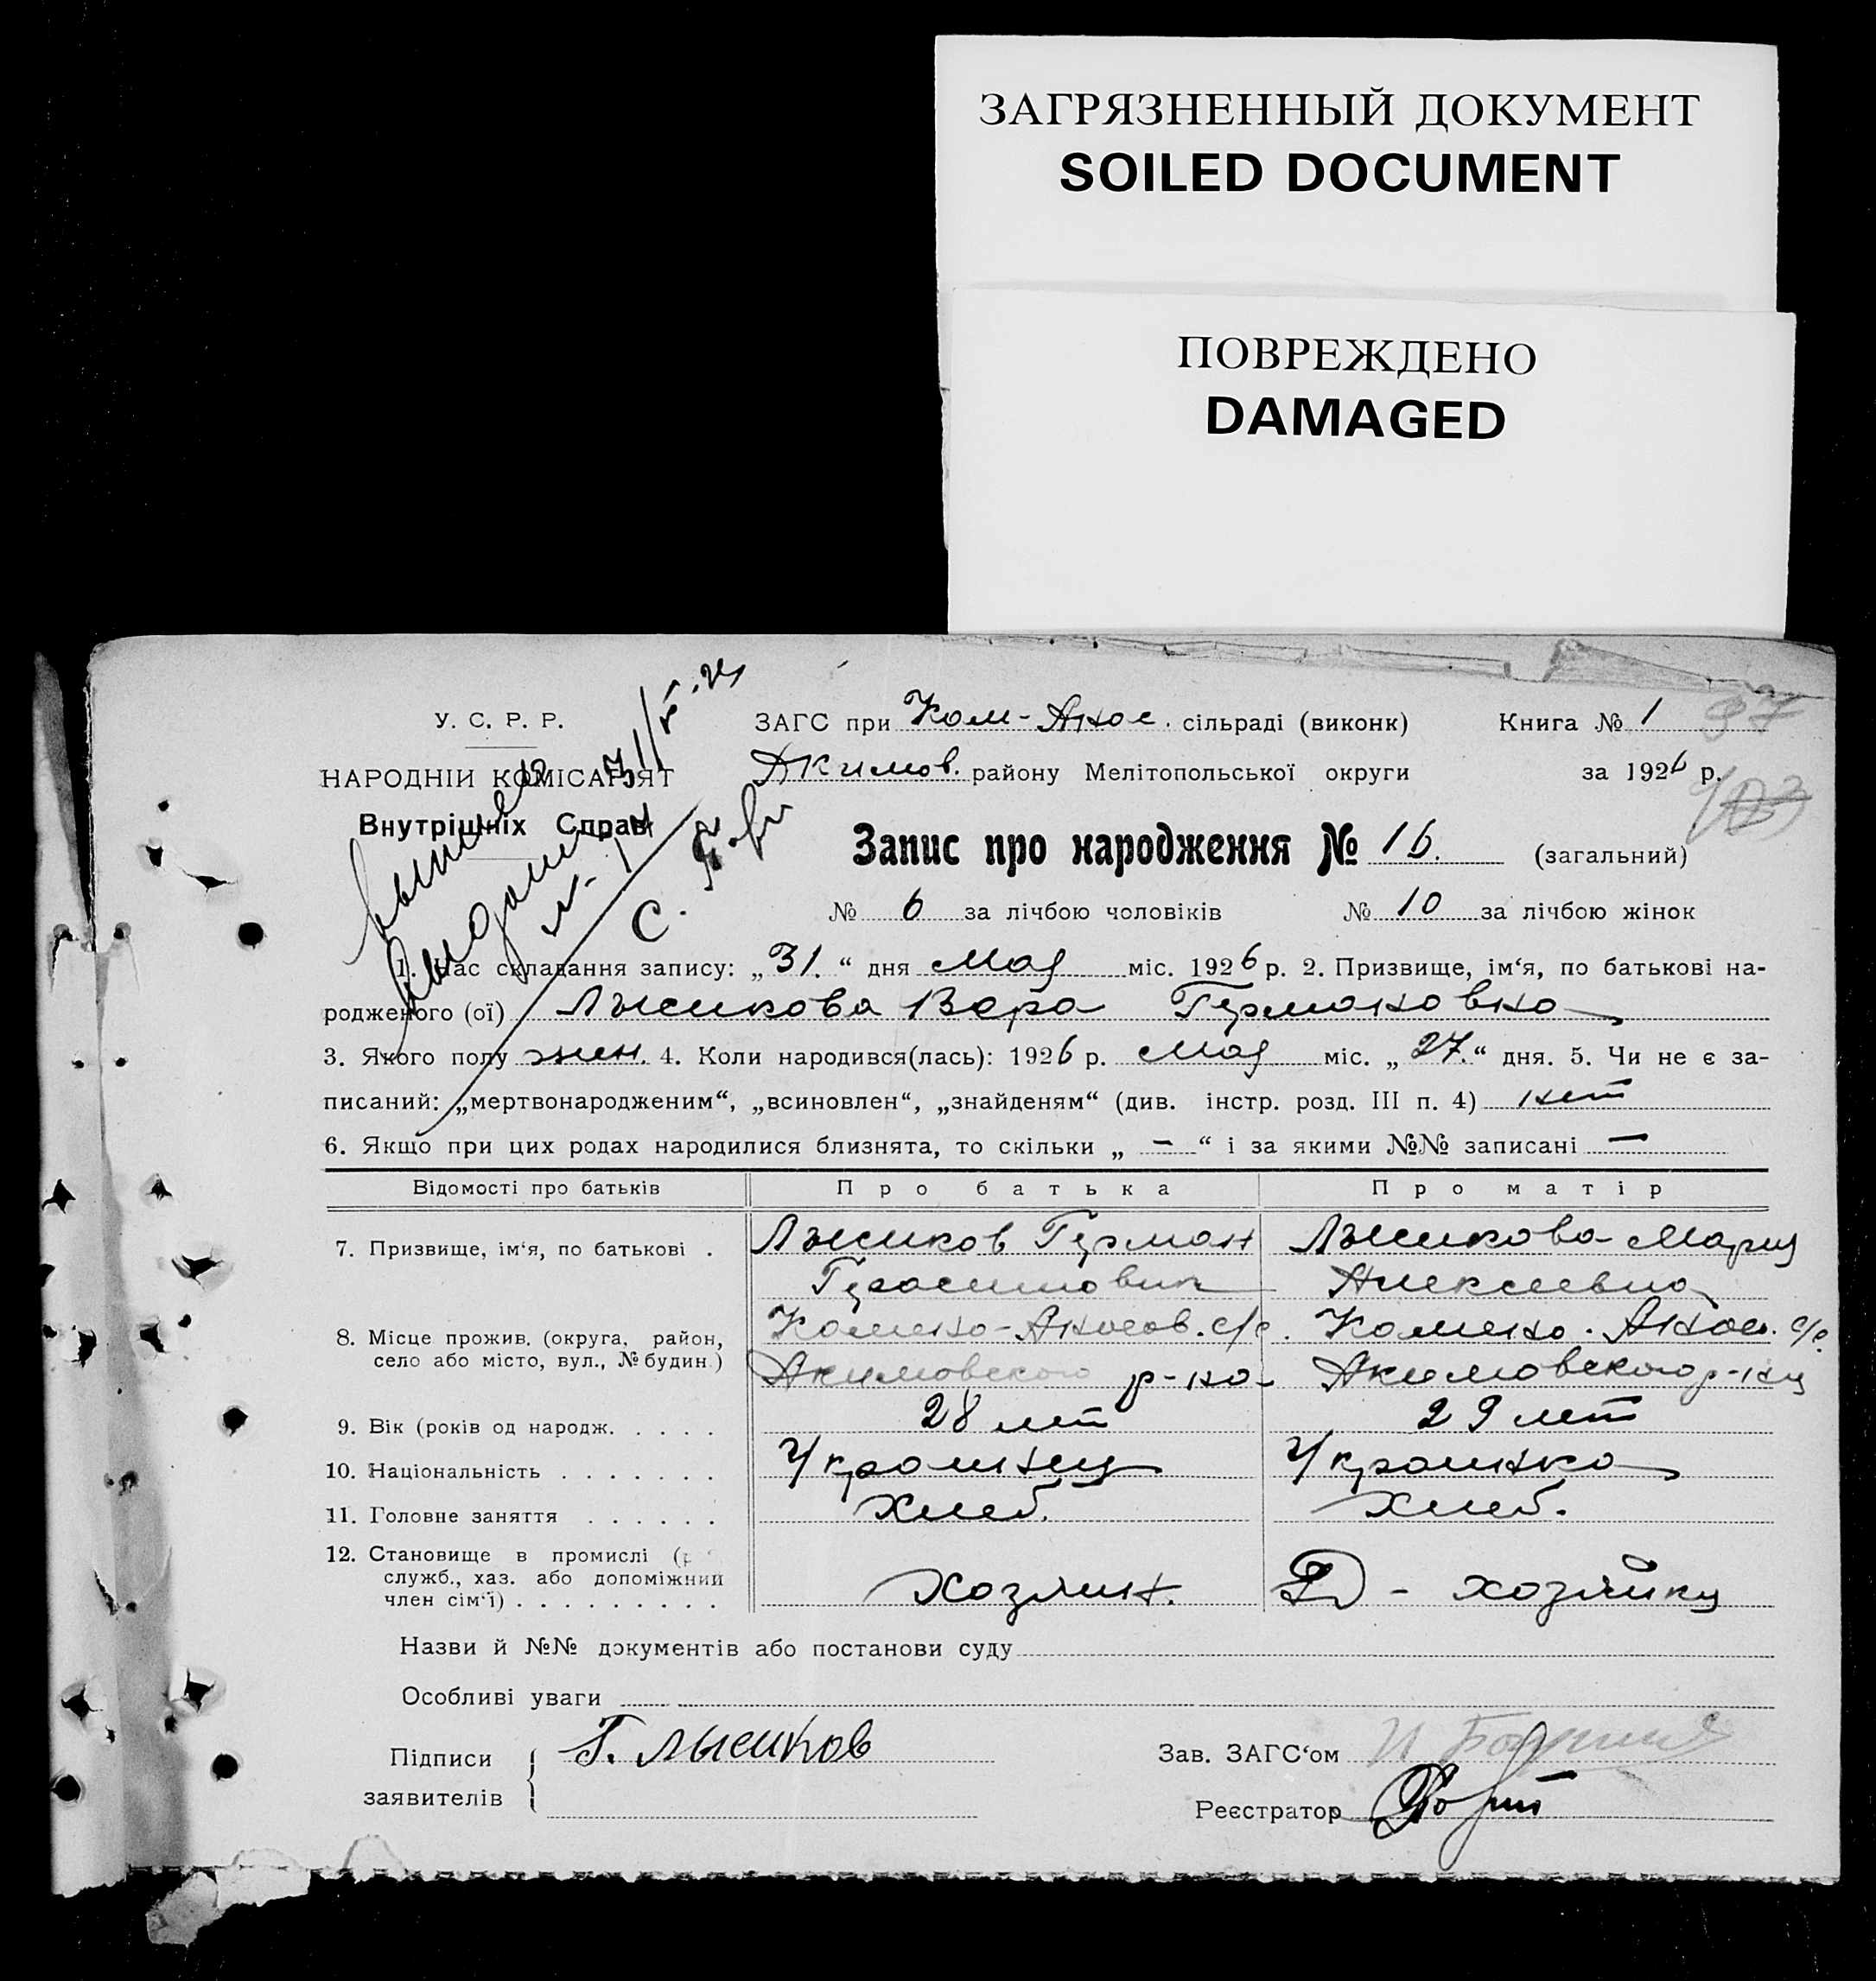 ЗАГРЯЗНЕННЫЙ ДОКУМЕНТ
SOILED DOCUMENT
ПОВРЕЖДЕНО
DAMAGED
У. С. Р. Р.
НАРОДНІЙ КОМІСАРІЯТ
Внутрішніх Справ
ЗАГС при Ком-Анов. сільраді (виконк) Книга № 1 97
Акимов. району Мелітопольської округи за 1926 р.
Запис про народження № 16. (загальний)
№ 6 за лічбою чоловіків № 10 за лічбою жінок
1. Час складання запису: „31.“ дня Мая міс. 1926 р. 2. Призвище, ім‘я, по батькові на-
родженого (ої) Лысикова Вера Германовна
3. Якого полу жен. 4. Коли народився(лась): 1926 р. Мая міс. „27.“ дня. 5. Чи не є за-
писаний: „мертвонародженим“, „всиновлен“, „знайденям“ (див. інстр. розд. III п. 4) нет
6. Якщо при цих родах народилися близнята, то скільки „ — “ і за якими №№ записані —
Відомості про батьків Про батька Про матір
7. Призвище, ім‘я, по батькові . Лысиков Герман Лысикова Мария
Герасимович Алексеевна
8. Місце прожив. (округа, район,
село або місто, вул., № будин.)
Акимовского р-на Акимовского р-на
9. Вік (років од народж. . . . . 28 лет 29 лет
10. Національність . . . . . . . Украинец Украинка
11. Головне заняття . . . . . . Хлеб. Хлеб.
12. Становище в промислі (р
служб., хаз. або допоміжний
член сім‘ї) . . . . . . . . . Хозяин. хозяйка
Назви й №№ документів або постанови суду
Особливі уваги
Підписи
заявителів
Г. Лысиков
Зав. ЗАГС‘ом
Реєстратор